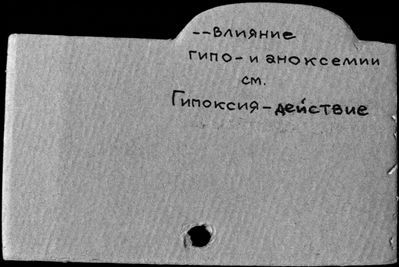 --влияние
гипо- и аноксемии
см.
Гипоксия-действие